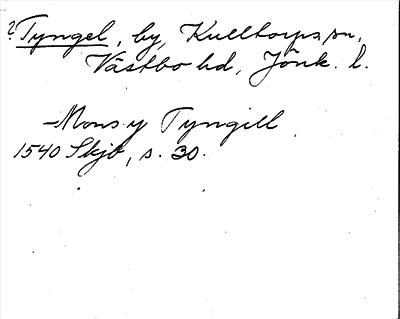 ? Tyngel, by, Kulltorps sn,
Västbo hd, Jönk. l.
– Mons y Tyngill
1540 Skjb, s. 30.